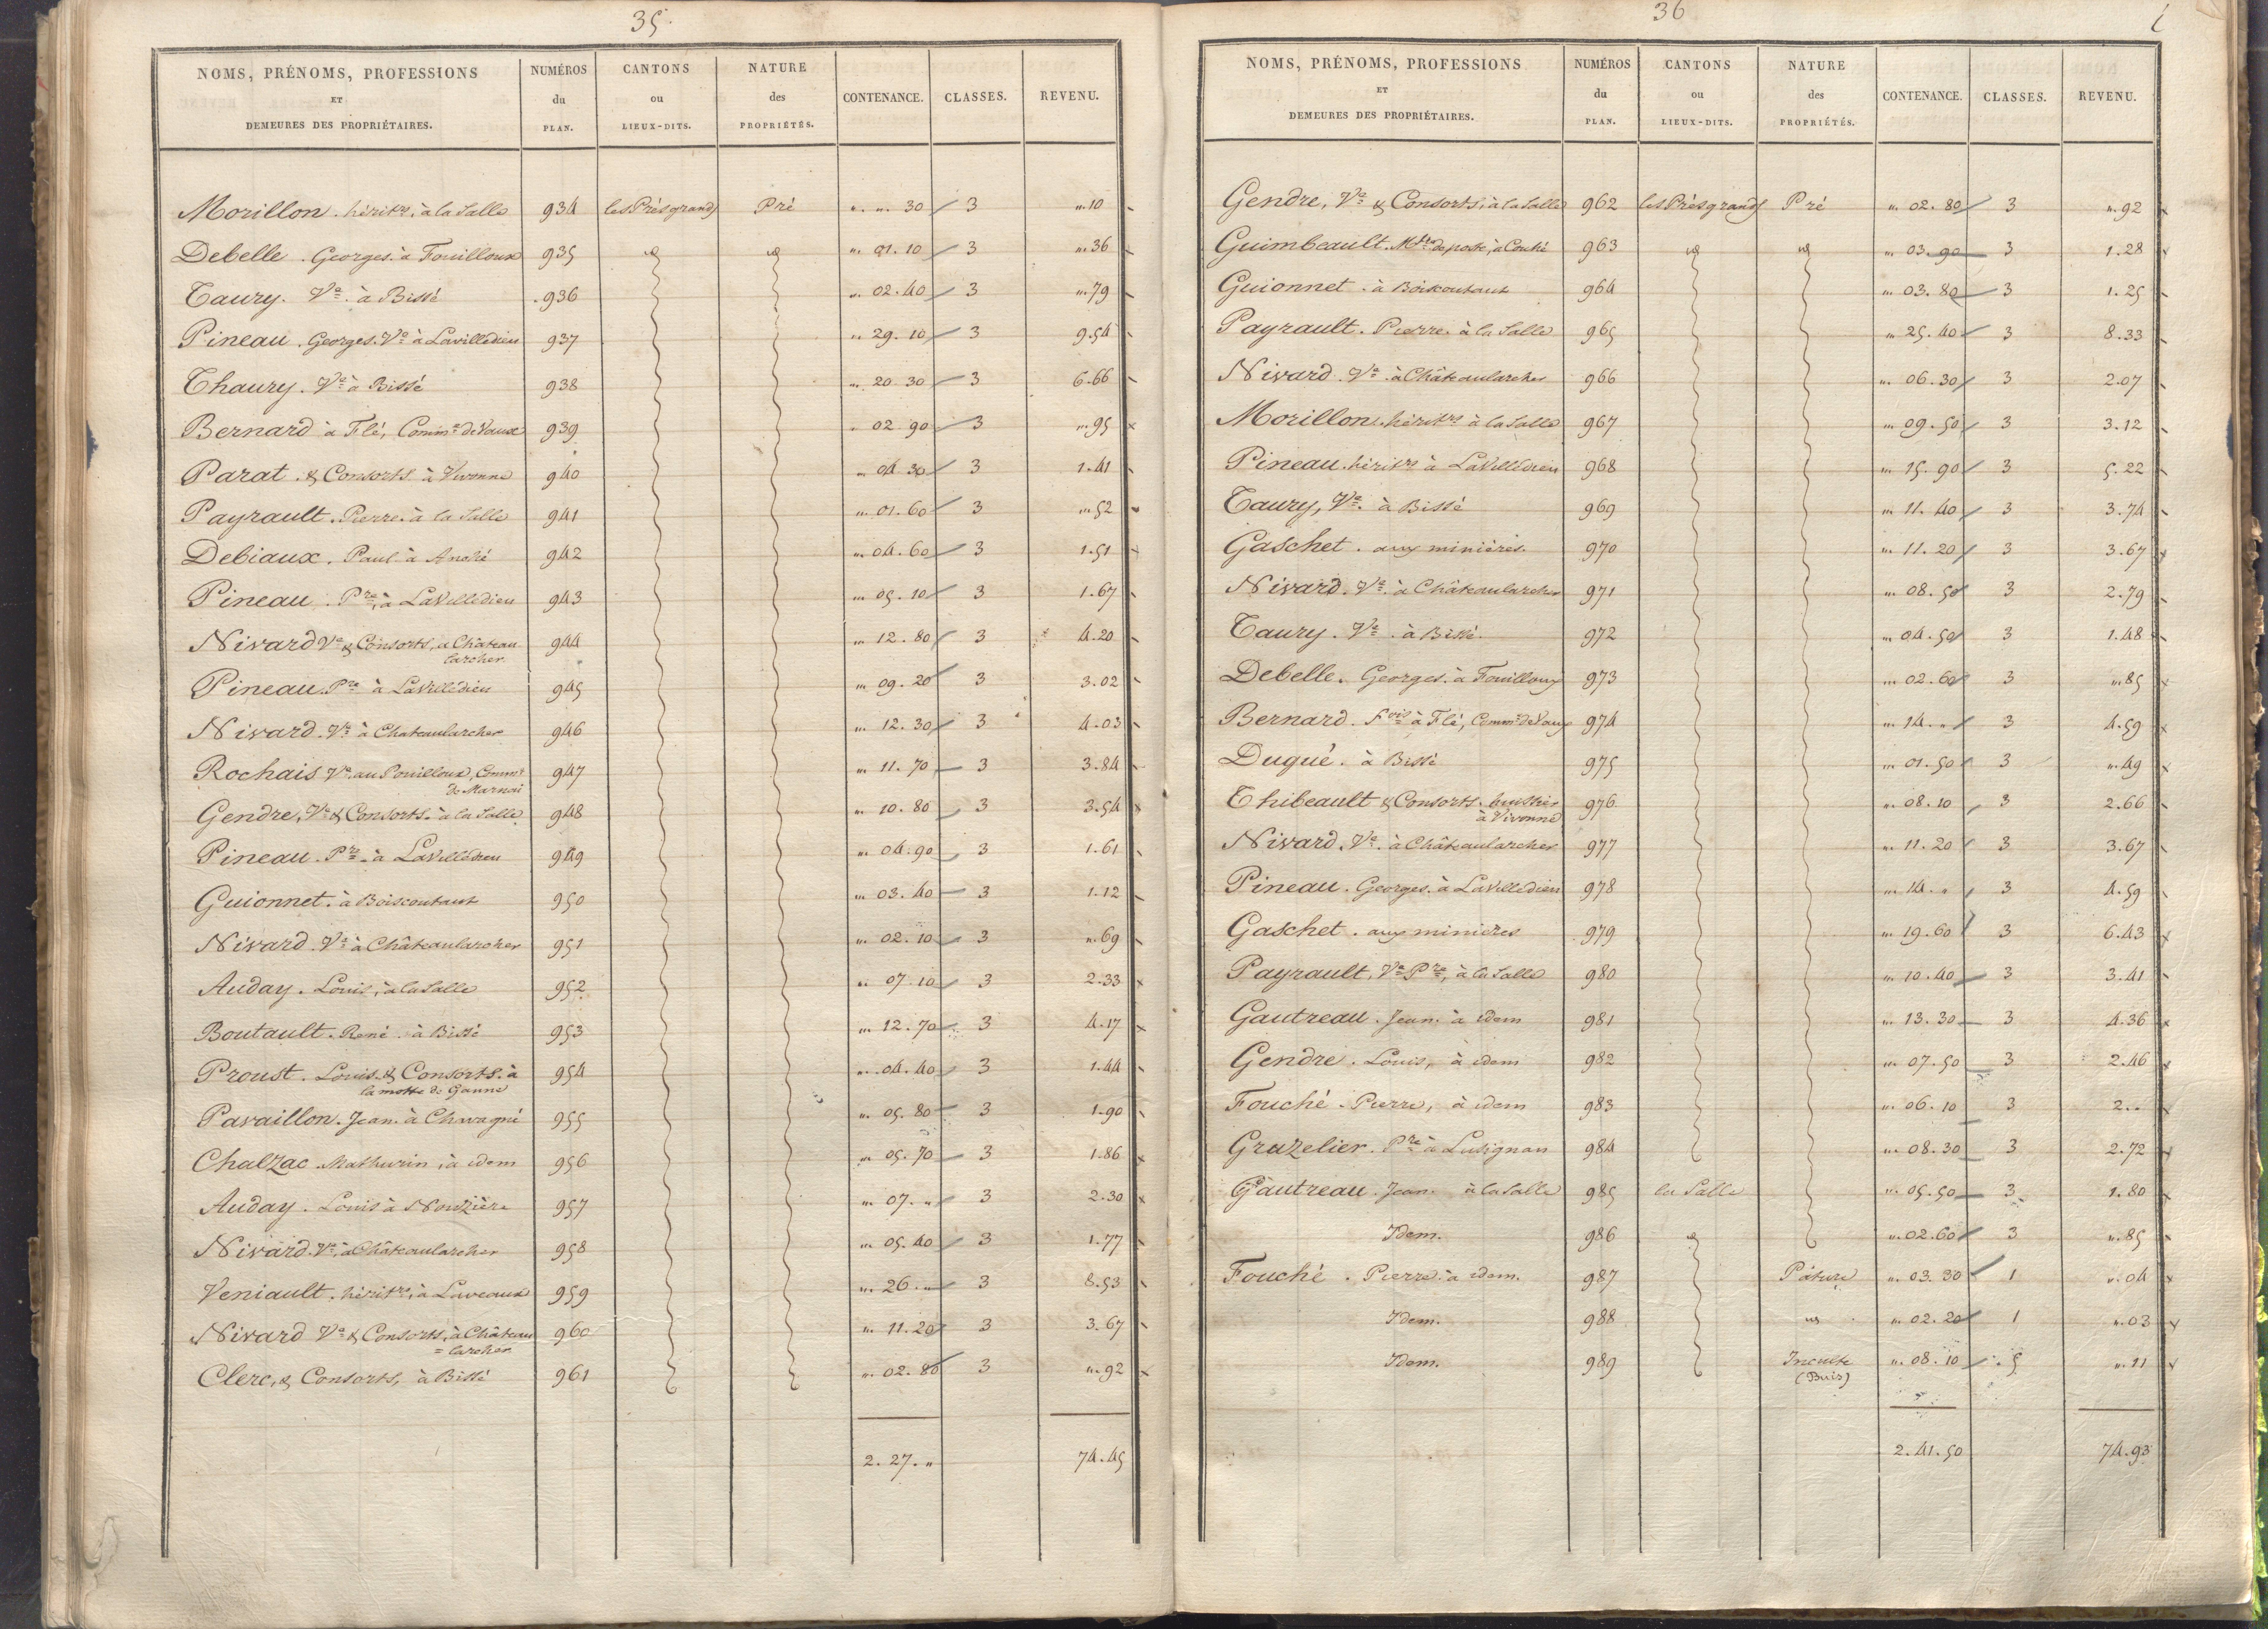 35.
NOMS, PRÉNOMS, PROFESSIONS ET DEMEURES DES PROPRIÉTAIRES. NUMÉROS du PLAN. CANTONS ou LIEUX-DITS. NATURE des PROPRIÉTÉS. CONTENANCE. CLASSES. REVENU.
Morillon. hérit.rs à la Salle 934 les Prés grands Pré „. „. 30 3 „.10
Debelle. Georges. à Fouilloux 935 id id „. 01. 10 3 „.36
Taury. Ve. à Bissé 936 „. 02. 40 3 „.79
Pineau. Georges. Ve à Lavilledieu 937 „. 29. 10 3 9.54
Thaury. Ve à Bissé 938 „. 20. 30 3 6.66
Bernard à Flé, Comm.e de Vaux 939 „. 02. 90 3 „.95
Parat. & Consorts. à Vivonne 940 „. 04. 30 3 1.41
Payrault. Pierre. à la Salle 941 „. 01. 60 3 „.52
Debiaux. Paul. à Anché 942 „. 04. 60 3 1.51
Pineau. Pre, à LaVilledieu 943 „. 05. 10 3 1.67
Nivard Ve & Consorts, à Château-
larcher 944 „. 12. 80 3 4.20
Pineau. Pre à LaVilledieu 945 „. 09. 20 3 3.02
Nivard. Ve à Chateaularcher 946 „. 12. 30 3 4.03
Rochais Ve, au Pouilloux, Comm.e
de Marnai 947 „. 11. 70 3 3.84
Gendre, Ve & Consorts. à la Salle 948 „. 10. 80 3 3.54
Pineau. Pre. à LaVilledieu 949 „. 04. 90 3 1.61
Guionnet. à Boiscoutaut 950 „. 03. 40 3 1.12
Nivard. Ve à Châteaularcher 951 „. 02. 10 3 „.69
Auday. Louis, à la Salle 952 „. 07. 10 3 2.33
Boutault. René. à Bissé 953 „. 12. 70 3 4.17
Proust. Louis. & Consorts. à
la motte de Ganne 954 „. 04. 40 3 1.44
Pavaillon. Jean. à Chwagné 955 „. 05. 80 3 1.90
Chalzac. Mathurin, à idem 956 „. 05. 70 3 1.86
Auday. Louis à Nouzière 957 „. 07. „ 3 2.30
Nivard. Ve, à Châteaularcher 958 „. 05. 40 3 1.77
Veniault. hérit.rs, à Laveaux 959 „. 26. „ 3 8.53
Nivard Ve & Consorts, à Château
=larcher 960 „. 11. 20 3 3.67
Clerc, & Consorts, à Bissé 961 „. 02. 80 3 „.92
2. 27. „ 74.45
36
NOMS, PRÉNOMS, PROFESSIONS ET DEMEURES DES PROPRIÉTAIRES. NUMÉROS du PLAN. CANTONS ou LIEUX-DITS. NATURE des PROPRIÉTÉS. CONTENANCE. CLASSES. REVENU.
Gendre, Ve & Consorts, à la Salle 962 les Prés grands Pré „. 02. 80 3 „.92
Guimbeault. Mtre de poste, à Couhé 963 id id „. 03. 90 3 1.28
Guionnet. à Boiscoutaut 964 „. 03. 80 3 1.25
Payrault. Pierre. à la Salle 965 „. 25. 40 3 8.33
Nivard. Ve. à Châteaularcher 966 „. 06. 30 3 2.07
Morillon. hérit.rs à la Salle 967 „. 09. 50 3 3.12
Pineau. hérit.rs à LaVilledieu 968 „. 15. 90 3 5.22
Taury, Ve. à Bissé 969 „. 11. 40 3 3.74
Gaschet. aux minières. 970 „. 11. 20 3 3.67
Nivard. Ve. à Châteaularcher 971 „. 08. 50 3 2.79
Taury. Ve. à Bissé. 972 „. 04. 50 3 1.48
Debelle. Georges. à Fouilloux 973 „. 02. 60 3 „.85
Bernard. Fois à Flé, Comm.e de Vaux 974 „. 14. „ 3 4.59
Dugué. à Bissé 975 „. 01. 50 3 „.49
Thibeault & Consorts. huissier
à Vivonne 976 „. 08. 10 3 2.66
Nivard, Ve. à Châteaularcher 977 „. 11. 20 3 3.67
Pineau. Georges. à LaVilledieu 978 „. 14. „ 3 4.59
Gaschet. aux minières 979 „. 19. 60 3 6.43
Payrault, Ve Pre, à la Salle 980 „. 10. 40 3 3.41
Gautreau. Jean. à idem 981 „. 13. 30 3 4.36
Gendre. Louis, à idem 982 „. 07. 50 3 2.46
Fouché. Pierre, à idem 983 „. 06. 10 3 2. „
Grazelier. Pre à Lusignan 984 „. 08. 30 3 2.72
Gautreau. Jean. à la Salle 985 la Salle „. 05. 50 3 1.80
Idem. 986 id „. 02. 60 3 „.85
Fouché. Pierre. à idem. 987 Pâture „. 03. 30 1 „.04
Idem. 988 id „. 02. 20 1 „.03
Idem. 989 Inculte
(Buis) „. 08. 10 5 „.11
2. 41. 50 74.93